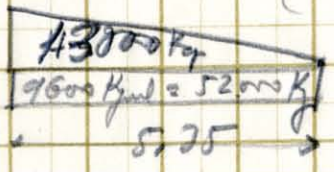 13800 Kg
9600 Kg/ml = 52000 Kg
5,35